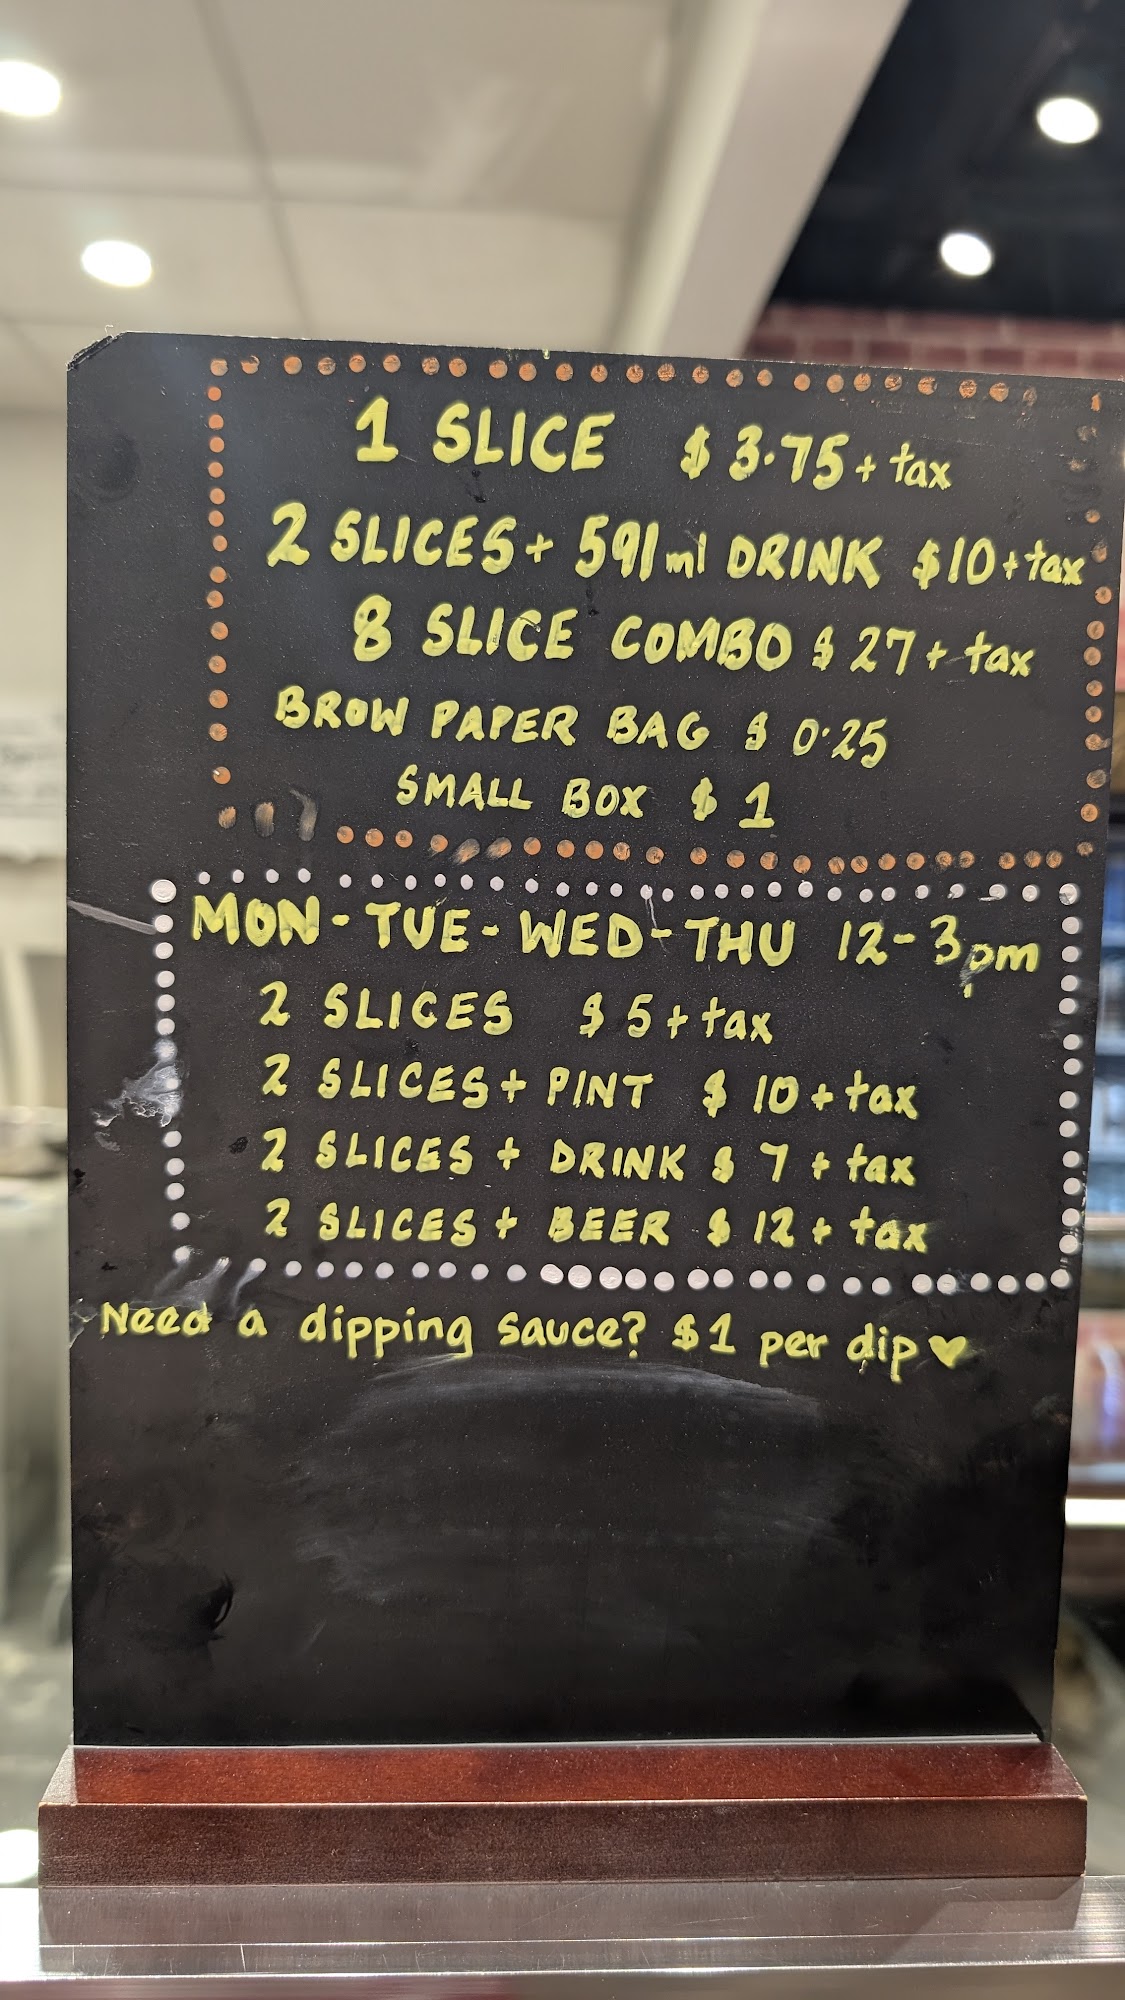 1 SLICE $3.75 + tax
2 SLICES + 591ml DRINK $10 + tax
8 SLICE COMBO $27 + tax
BROW PAPER BAG $0.25
SMALL BOX $1
MON - TUE - WED - THU 12-3pm
2 SLICES $5 + tax
2 SLICES + PINT $10 + tax
2 SLICES + DRINK $7 + tax
2 SLICES + BEER $12 + tax
Need a dipping sauce? $1 per dip ♥